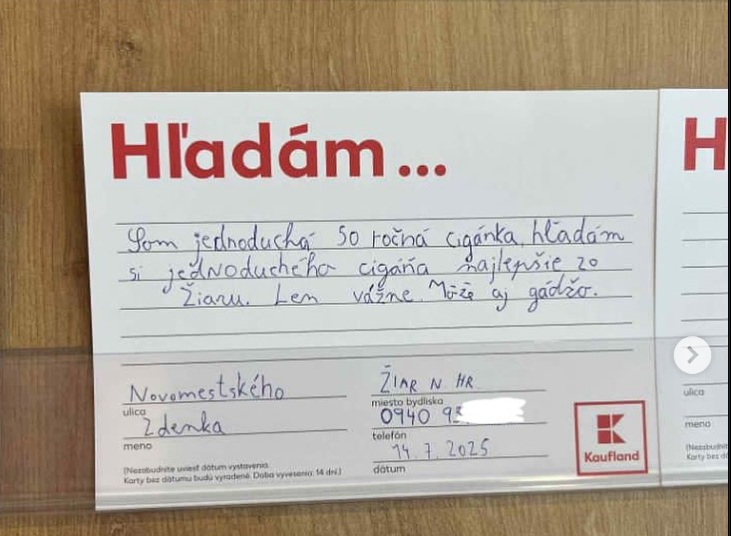 Hľadám...
Som jednoduchá 50 ročná cigánka, hľadám
si jednoduchého cigáňa najlepšie zo
Žiaru. Len vážne. Môže aj gádžo.
Novomestského
ulica
Zdenka
meno
ŽIAR N. HR
miesto bydliska
0940 93
telefón
14.7.2025
dátum
(Nezabudnite uviesť dátum vystavenia.
Karty bez dátumu budú vyradené. Doba vyvesenia: 14 dní.)
Kaufland
H
ulica
meno
(Nezabudnit
Karty bez d